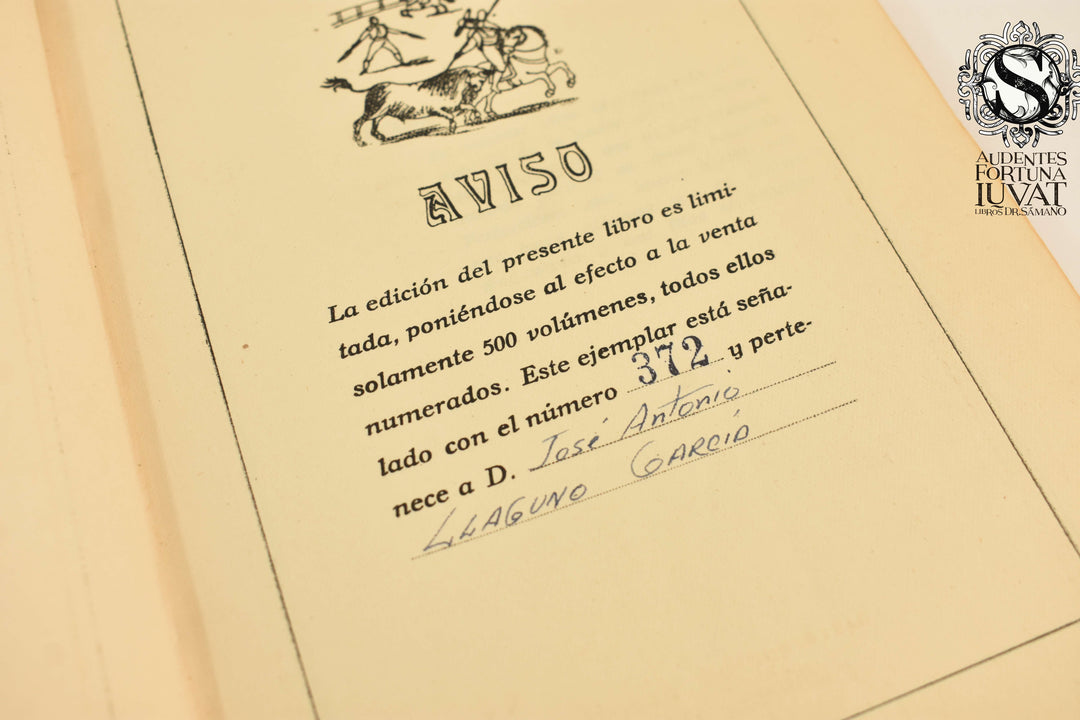 AVISO
La edición del presente libro es limi-
tada, poniéndose al efecto a la venta
solamente 500 volúmenes, todos ellos
numerados. Este ejemplar está seña-
lado con el número 372 y perte-
nece a D. José Antonio
LLAGUNO GARCIA
S
AUDENTES
FORTUNA
IUVAT
LIBROS DR. SÁMANO